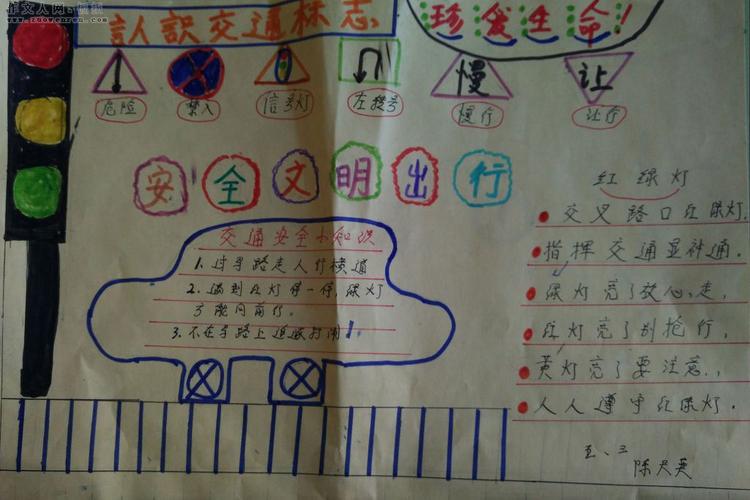 认识交通标志
珍爱生命!
危险
禁入
信号灯
慢
慢行
让
让行
安全文明出行
交通安全小知识
1. 过马路走人行横道
2. 遇到红灯停一停,绿灯
方能向前行。
3. 不在马路上追逐打闹!
红绿灯
交叉路口红绿灯,
指挥交通显神通,
绿灯亮了放心走,
红灯亮了别抢行,
黄灯亮了要注意,
人人遵守红绿灯.
五、三